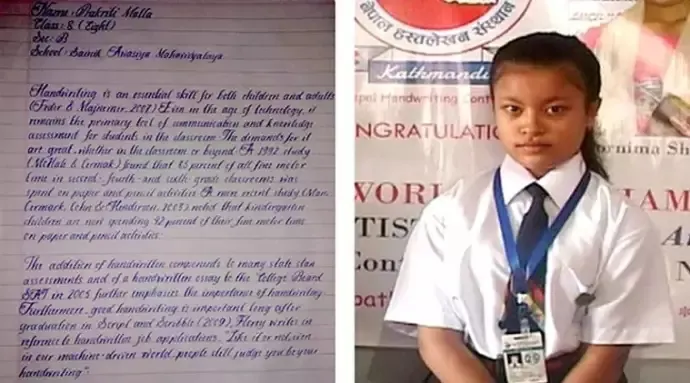 Name : Prakriti Malla
Class : 8 (Eight)
Sec : B
School : Sainik Awasiya Mahavidyalaya
Handwriting is an essential skill for both children and adults
(Feder & Majnemer, 2007). Even in the age of technology, it
remains the primary tool of communication and knowledge
assessment for students in the classroom. The demands for it
are great, whether in the classroom or beyond. A 1992 study
(McHale & Cermak) found that 85 percent of all fine motor
time in second- fourth- and sixth-grade classrooms was
spent on paper and pencil activities. A more recent study (Marr,
Cermark, Cohn & Henderson, 2003) noted that kindergarten
children are now spending 42 percent of their fine motor time
on paper and pencil activities.
The addition of handwritten components to many state
assessments and of a handwritten essay to the College Board
SAT in 2005 further emphasis the importance of handwriting.
Furthermore, good handwriting is important long after
graduation in Script and Scribble (2009), Florey writes in
reference to handwritten job applications, "Like it or not, even
in our machine-driven world, people still judge you by your
handwriting".
नेपाल हस्तलेखन संस्थान
Kathmandu
Handwriting Cont
CONGRATULATI
rnima Sh
WORL
HAM
TIST
Cont
N